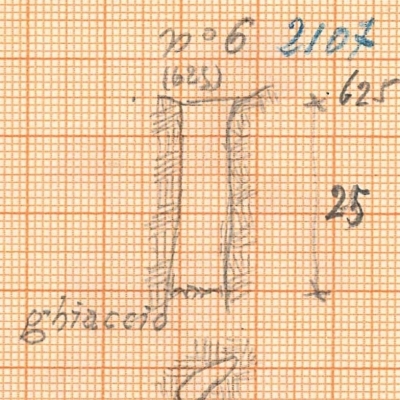 n° 6 2107
(625)
625
25
ghiaccio